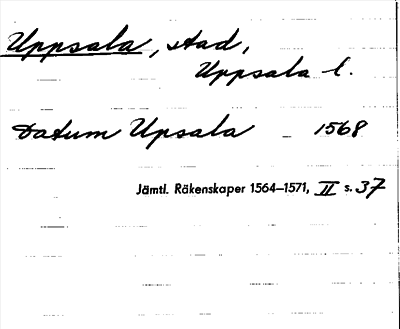 Uppsala, stad,
Uppsala l.
Datum Upsala _ 1568
Jämtl. Räkenskaper 1564–1571, II s. 37